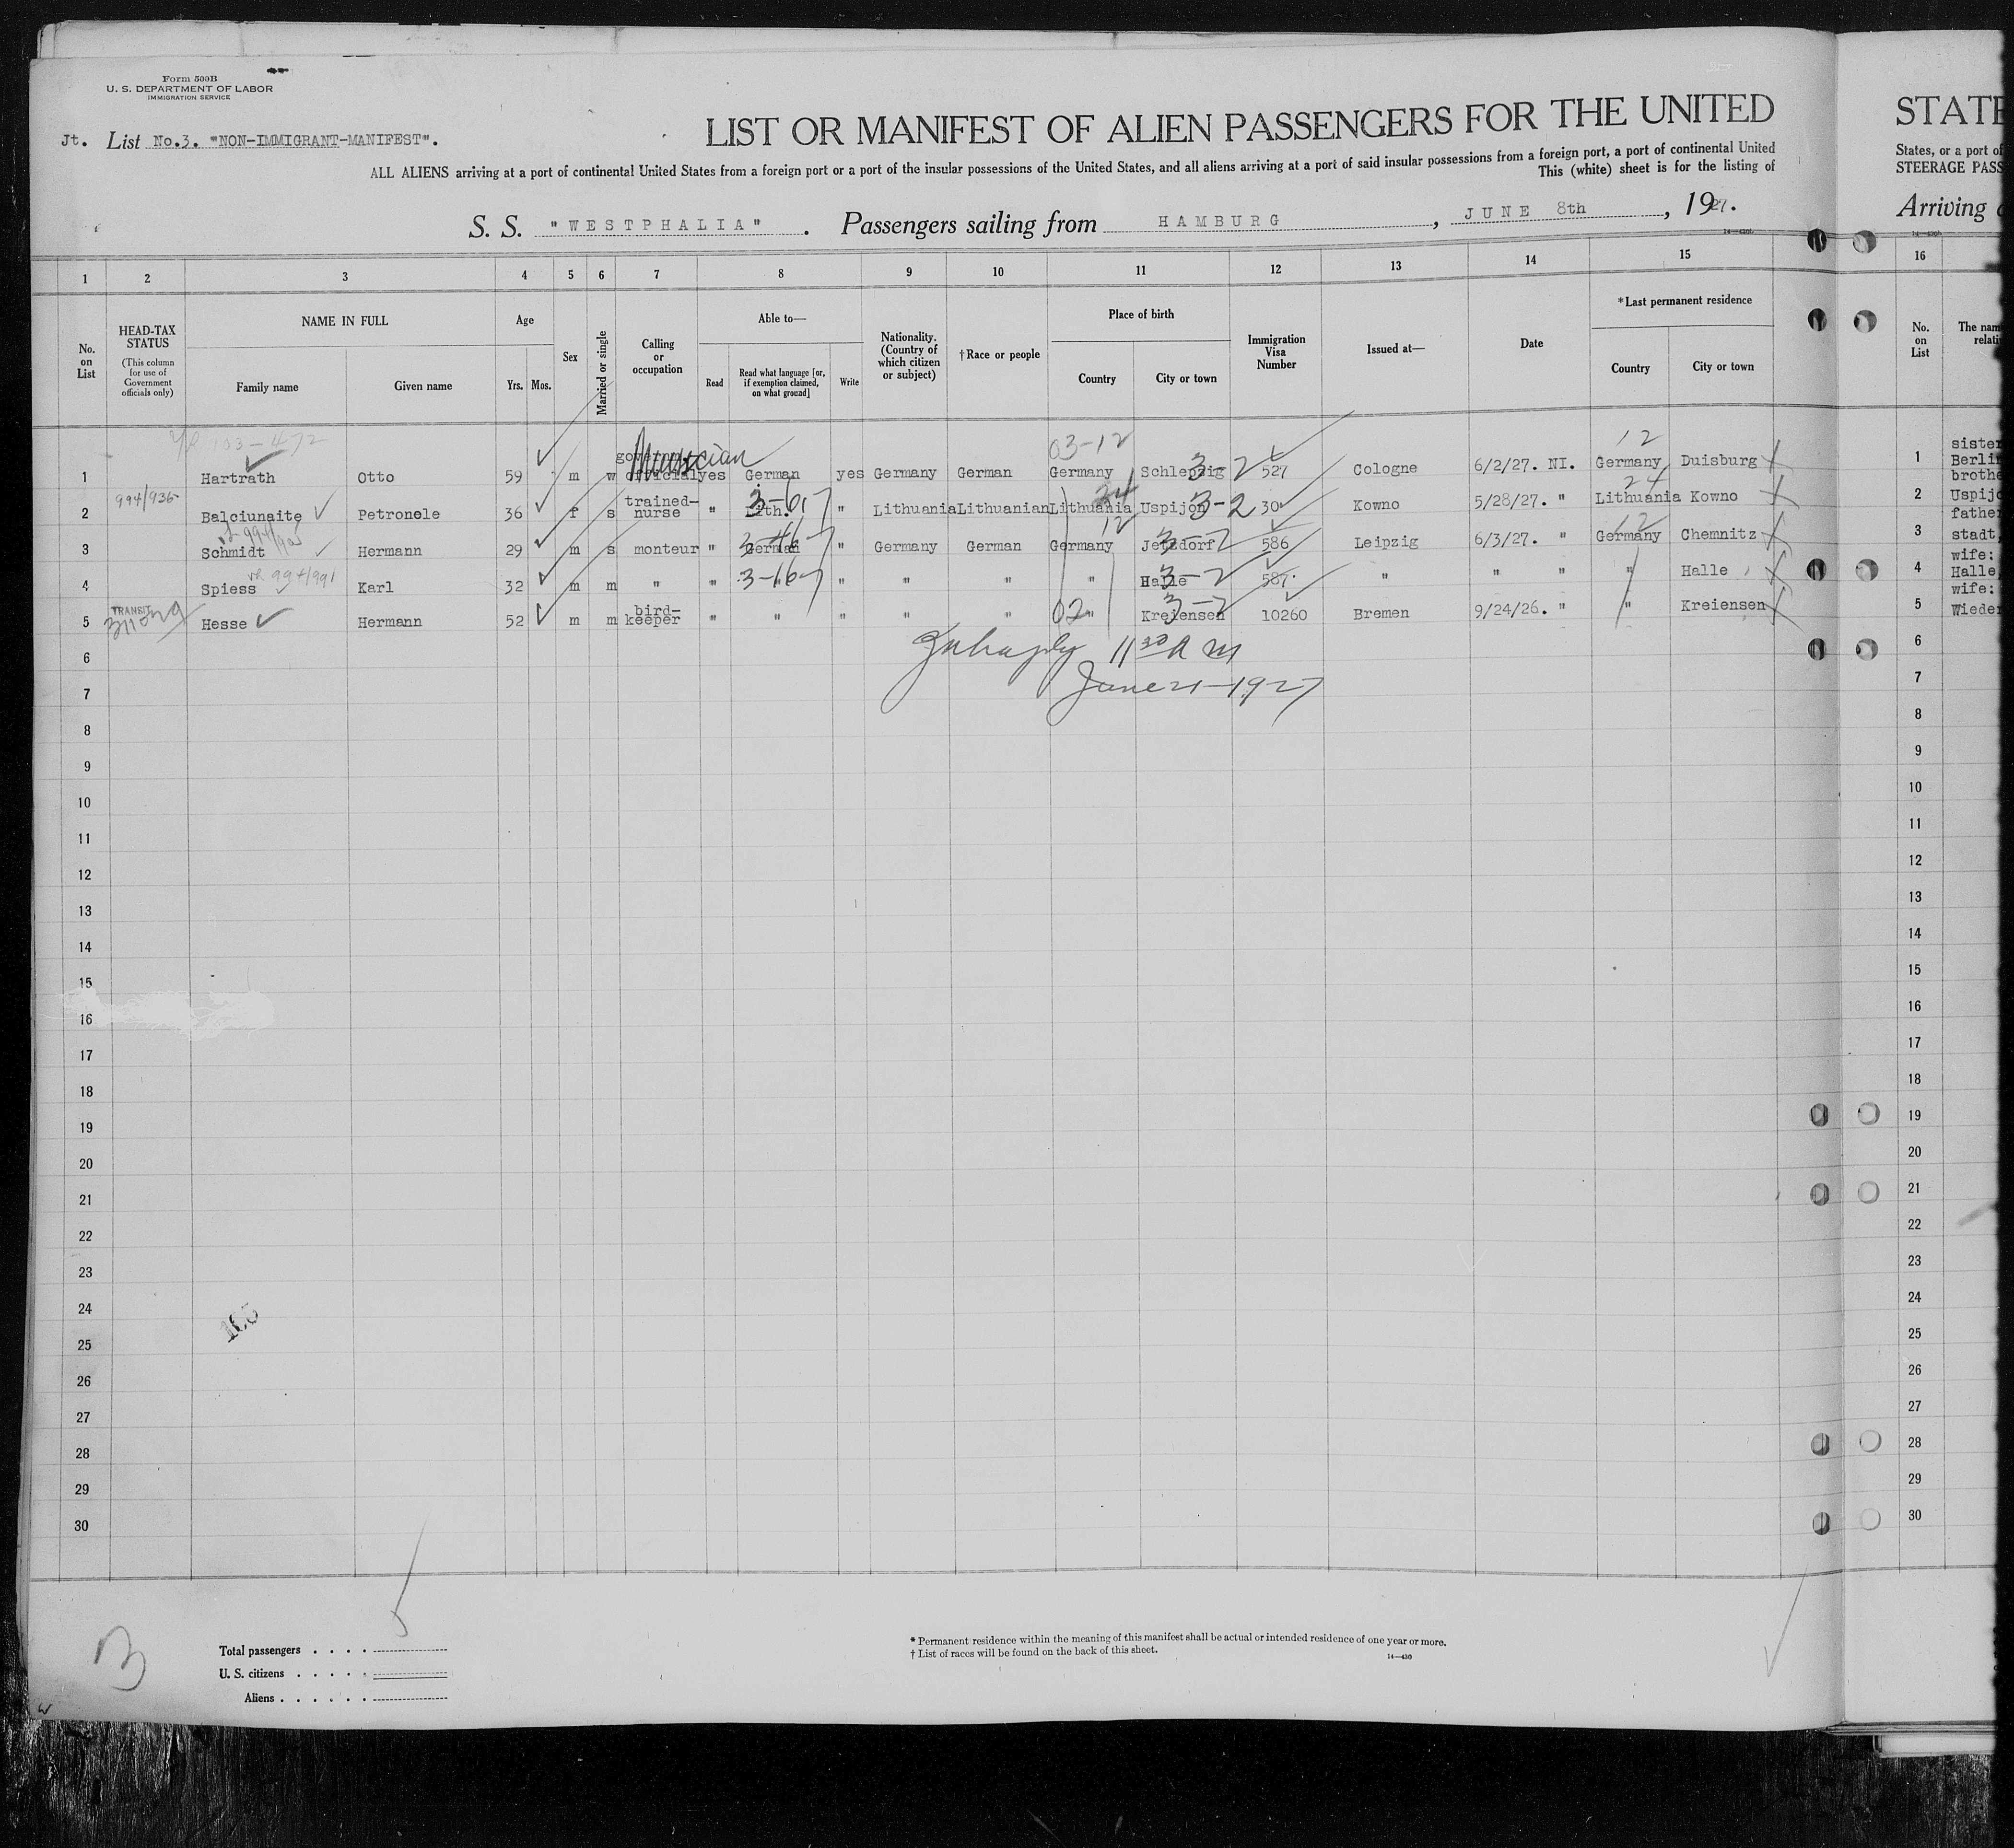 Form 500B
U. S. DEPARTMENT OF LABOR
IMMIGRATION SERVICE
Jt. List No.3. "NON-IMMIGRANT-MANIFEST".
LIST OR MANIFEST OF ALIEN PASSENGERS FOR THE UNITED
ALL ALIENS arriving at a port of continental United States from a foreign port or a port of the insular possessions of the United States, and all aliens arriving at a port of said insular possessions from a foreign port, a port of continental United
This (white) sheet is for the listing of
S. S. "WESTPHALIA". Passengers sailing from HAMBURG, JUNE 8th, 1927.
STATE
States, or a port of
STEERAGE PASS
Arriving
1 2 3 4 5 6 7 8 9 10 11 12 13 14 15 16
No. on List
HEAD-TAX STATUS
(This column for use of Government officials only)
NAME IN FULL
Family name Given name
Age
Yrs. Mos.
Sex
Married or single
Calling or occupation
Able to—
Read
Read what language [or, if exemption claimed, on what ground]
Write
Nationality. (Country of which citizen or subject)
†Race or people
Place of birth
Country City or town
Immigration Visa Number
Issued at—
Date
*Last permanent residence
Country City or town
No. on List
The nam
relati
03-12 12
Musician
1 Hartrath Otto 59 m w official yes German yes Germany German Germany Schlepzig 3-2 527 Cologne 6/2/27. NI. Germany Duisburg 1 sister Berlin brothe
994/936 24 24
2 Balciunaite Petronele 36 f s trained-nurse " Lith. " Lithuania Lithuanian Lithuania Uspijon 3-2 30 Kowno 5/28/27. " Lithuania Kowno 2 Uspijo father
12 12
3 Schmidt Hermann 29 m s monteur " German " Germany German Germany Jetzdorf 3-2 586 Leipzig 6/3/27. " Germany Chemnitz 3 stadt, wife:
994/991
4 Spiess Karl 32 m m " " 3-16 " " " " Halle 3-2 587 " " " " Halle 4 Halle, wife:
TRANSIT
5 Hesse Hermann 52 m m bird-keeper " " " " " 02 " Kreiensen 3-2 10260 Bremen 9/24/26. " " Kreiensen 5 Wieder
11 30 A M
June 21-1927
6 6
7 7
8 8
9 9
10 10
11 11
12 12
13 13
14 14
15 15
16 16
17 17
18 18
19 19
20 20
21 21
22 22
23 23
24 24
25 25
26 26
27 27
28 28
29 29
30 30
5
Total passengers
U. S. citizens
Aliens
* Permanent residence within the meaning of this manifest shall be actual or intended residence of one year or more.
† List of races will be found on the back of this sheet.
14—430